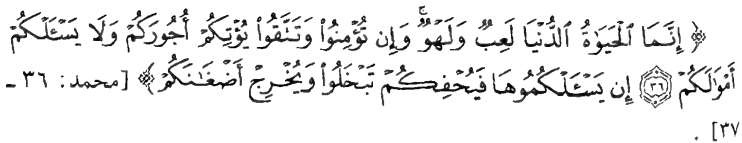 ﴿ إِنَّمَا الْحَيَوٰةُ الدُّنْيَا لَعِبٌ وَلَهْوٌ ۚ وَإِن تُؤْمِنُوا۟ وَتَتَّقُوا۟ يُؤْتِكُمْ أُجُورَكُمْ وَلَا يَسْـَٔلْكُمْ
أَمْوَٰلَكُمْ ﴿٣٦﴾ إِن يَسْـَٔلْكُمُوهَا فَيُحْفِكُمْ تَبْخَلُوا۟ وَيُخْرِجْ أَضْغَـٰنَكُمْ ﴾ [محمد: ٣٦ -
٣٧] .